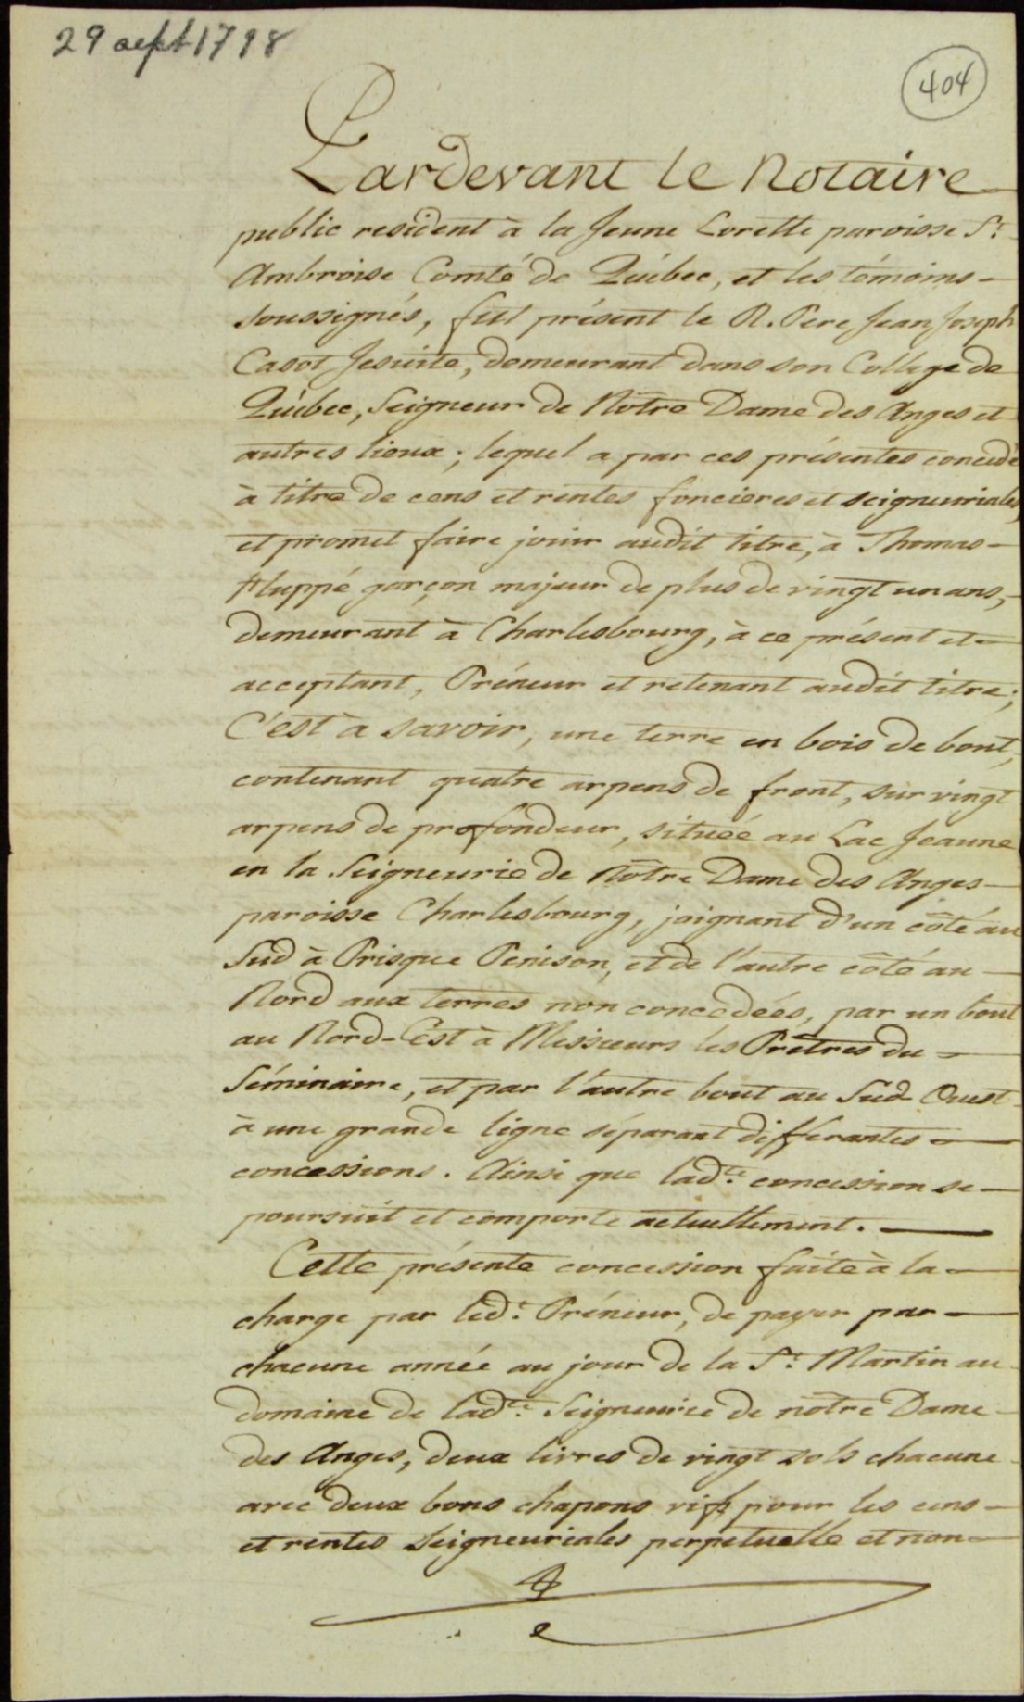 29 sept 1798
404
Pardevant le Notaire
public resident à la Jeune Lorette paroisse St.
Ambroise Comté de Québec, et les témoins
soussignés, fut présent le R. Pere Jean Joseph
Casot Jesuite, demeurant dans son College de
Québec, Seigneur de Notre Dame des Anges et
autres lieux; lequel a par ces présentes concedé
à titre de cens et rentes foncieres et seigneuriales,
et promet faire jouir audit titre, à Thomas
Huppé garçon majeur de plus de vingt un ans,
demeurant à Charlesbourg, à ce présent et
acceptant, Préneur et retenant audit titre;
C'est à savoir, une terre en bois de bout,
contenant quatre arpens de front, sur vingt
arpens de profondeur, située au Lac Jeaune
en la Seigneurie de Notre Dame des Anges
paroisse Charlesbourg, joignant d'un côté au
Sud à Prisque Penison, et de l'autre côté au
Nord aux terres non concedées, par un bout
au Nord-Est à Messieurs les Prêtres du
Séminaire, et par l'autre bout au Sud Ouest
à une grande ligne séparant differantes
concessions. Ainsi que ladte. concession se
poursuit et comporte actuellement.
Cette présente concession faite à la
charge par led. Préneur, de payer par
chacune année au jour de la St. Martin au
domaine de ladte. Seigneurie de notre Dame
des Anges, deux livres de vingt sols chacune
avec deux bons chapons vifs pour les cens
et rentes Seigneuriales perpetuelle et non